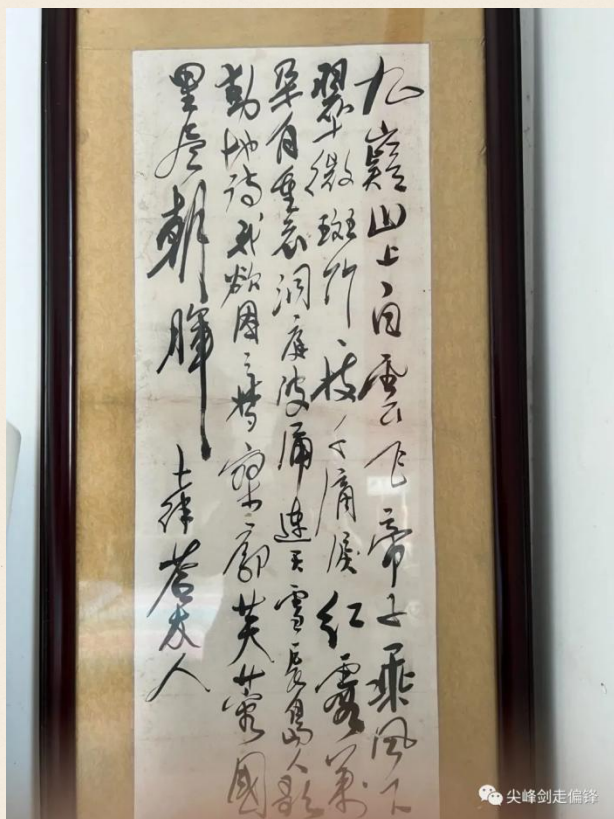 九嶷山上白雲飞帝子乘風下
翠微斑竹一枝千滴淚红霞萬
朵百重衣洞庭波涌連天雪長島人歌
動地诗我欲因之梦寥廓芙蓉國
里尽朝暉
七律答友人
尖峰剑走偏锋